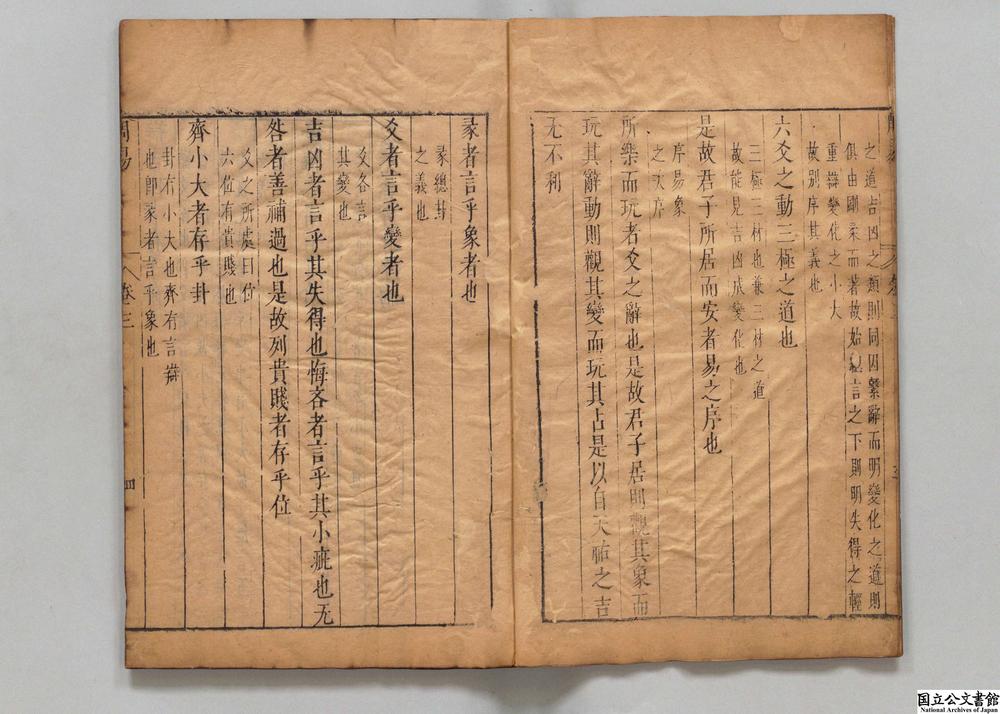 之道吉凶之類則同因繫辭而明變化之道則
俱由剛柔而著故始總言之下則明失得之輕
重辯變化之小大
故別序其義也
六爻之動三極之道也
三極三材也兼三材之道
故能見吉凶成變化也
是故君子所居而安者易之序也
序易象
之次序
所樂而玩者爻之辭也是故君子居則觀其象而
玩其辭動則觀其變而玩其占是以自天祐之吉
无不利
彖者言乎象者也
彖總卦
之義也
爻者言乎變者也
爻各言
其變也
吉凶者言乎其失得也悔吝者言乎其小疵也无
咎者善補過也是故列貴賤者存乎位
爻之所處曰位
六位有貴賤也
齊小大者存乎卦
卦有小大也齊有言辯
也即彖者言乎象也
周易
卷三
四
国立公文書館
National Archives of Japan